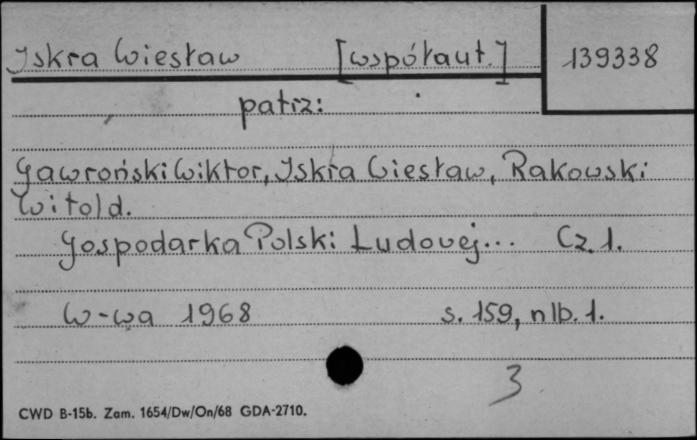 Iskra Wiesław [współaut.] 139338
patrz:
Gawroński Wiktor, Iskra Wiesław, Rakowski
Witold.
Gospodarka Polski Ludowej... Cz. 1.
W-wa 1968 s. 159, nlb. 1.
3
CWD B-15b. Zam. 1654/Dw/On/68 GDA-2710.